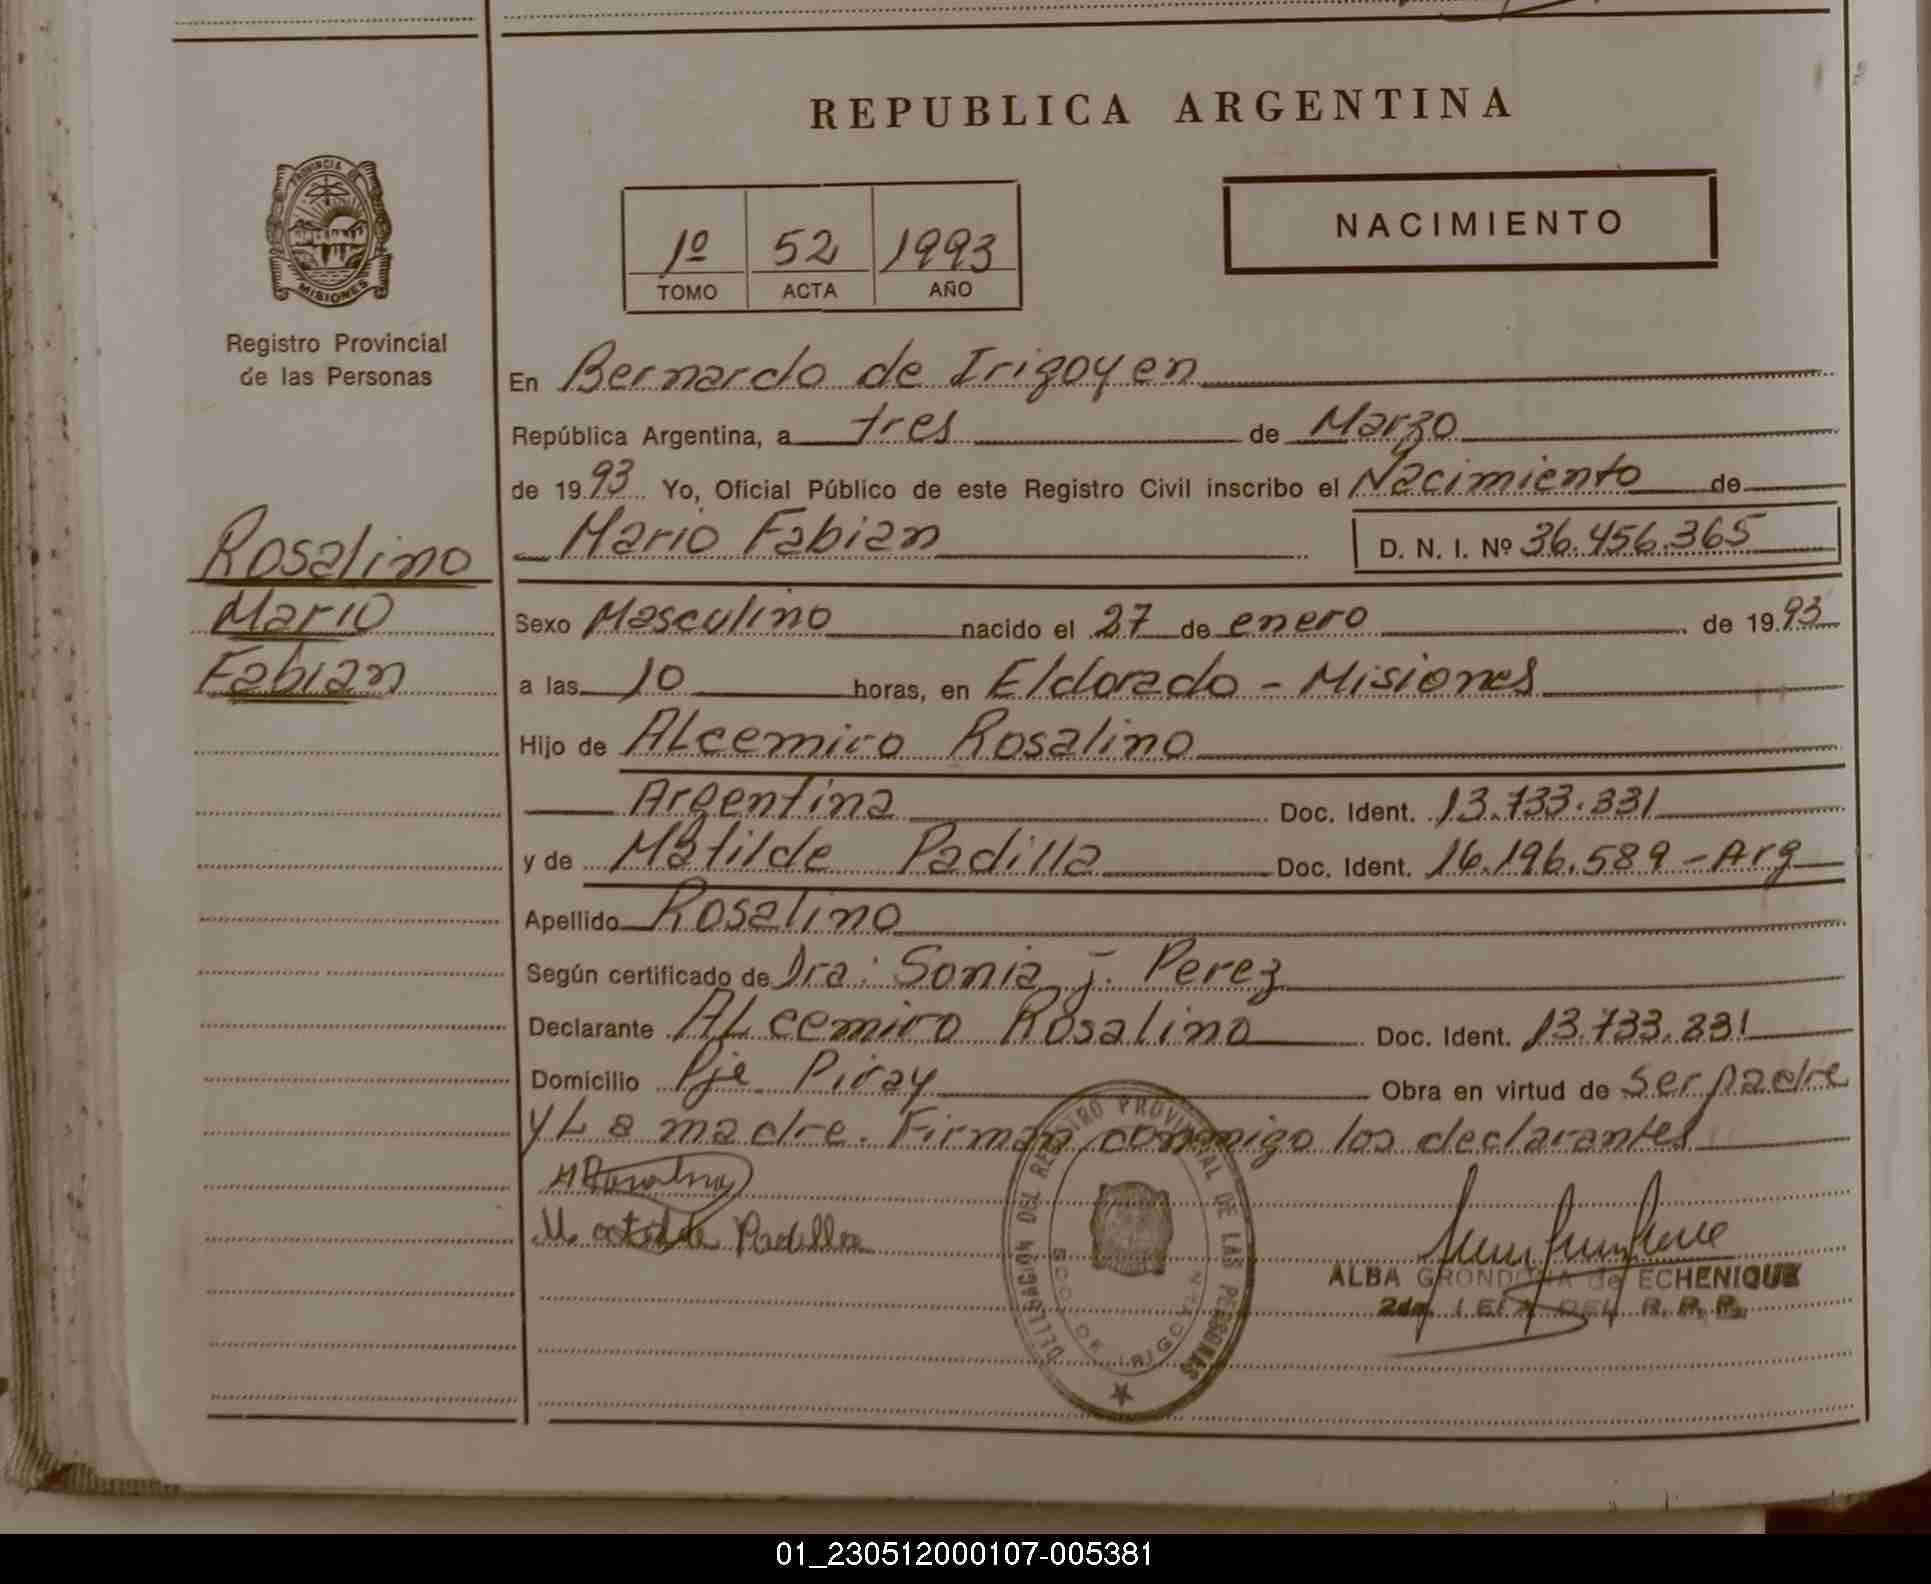 REPUBLICA ARGENTINA
PROVINCIA DE
MISIONES
Registro Provincial
de las Personas
1º 52 1993
TOMO ACTA AÑO
NACIMIENTO
En Bernardo de Irigoyen
República Argentina, a tres de Marzo
de 19 93 Yo, Oficial Público de este Registro Civil inscribo el Nacimiento de
Mario Fabian D. N. I. Nº 36.456.365
Rosalino
Mario
Fabian
Sexo Masculino nacido el 27 de enero de 19 93
a las 10 horas, en Eldorado - Misiones
Hijo de ALcemiro Rosalino
Argentina Doc. Ident. 13.733.331
y de Matilde Padilla Doc. Ident. 16.196.589 - Arg
Apellido Rosalino
Según certificado de Dra: Sonia J. Perez
Declarante ALcemiro Rosalino Doc. Ident. 13.733.331
Domicilio Pje Piray Obra en virtud de ser padre
y La madre. Firman conmigo los declarantes
Matilde Padilla
DELEGACION DEL REGISTRO PROVINCIAL DE LAS PERSONAS
BDO. DE IRIGOYEN
ALBA GRONDONA de ECHENIQUE
R. P. P.
01_230512000107-005381